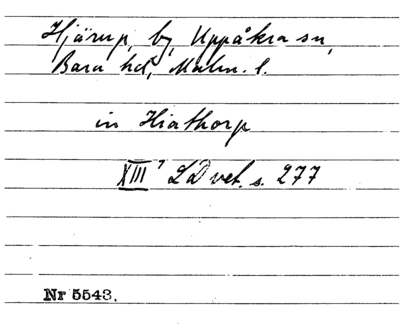 Hjärup, by, Uppåkra sn,
Bara hd, Malm. l.
in Hiathorp
XIII⁷ LD vet. s. 277
Nr 5543.